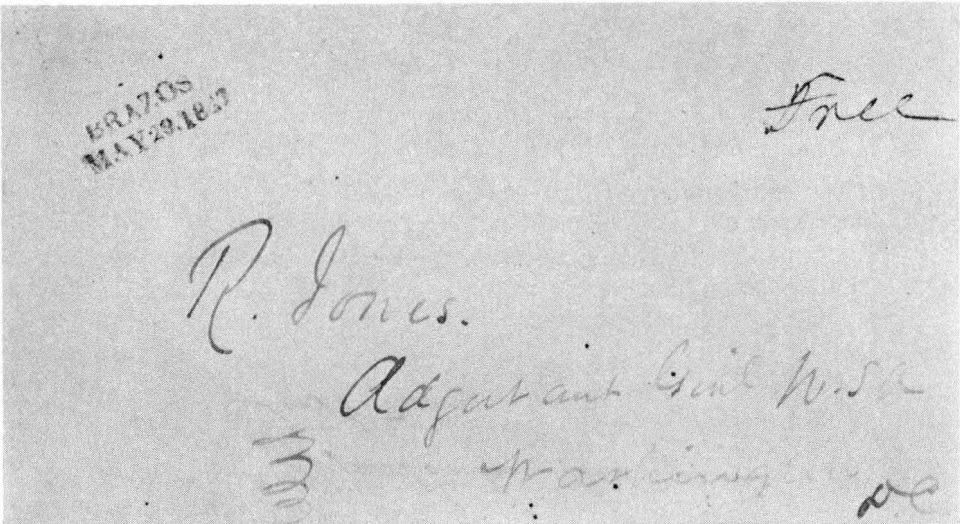 BRAZOS
MAY 29.1847
Free
R. Jones.
Adgutant Genl U.S.A
Washing
DC